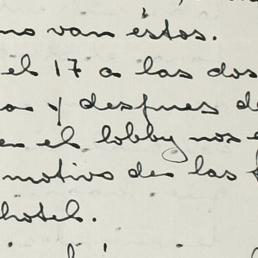 no van éstos.
el 17 a las dos
y despues de
en el lobby nos e
motivo de las
hotel.